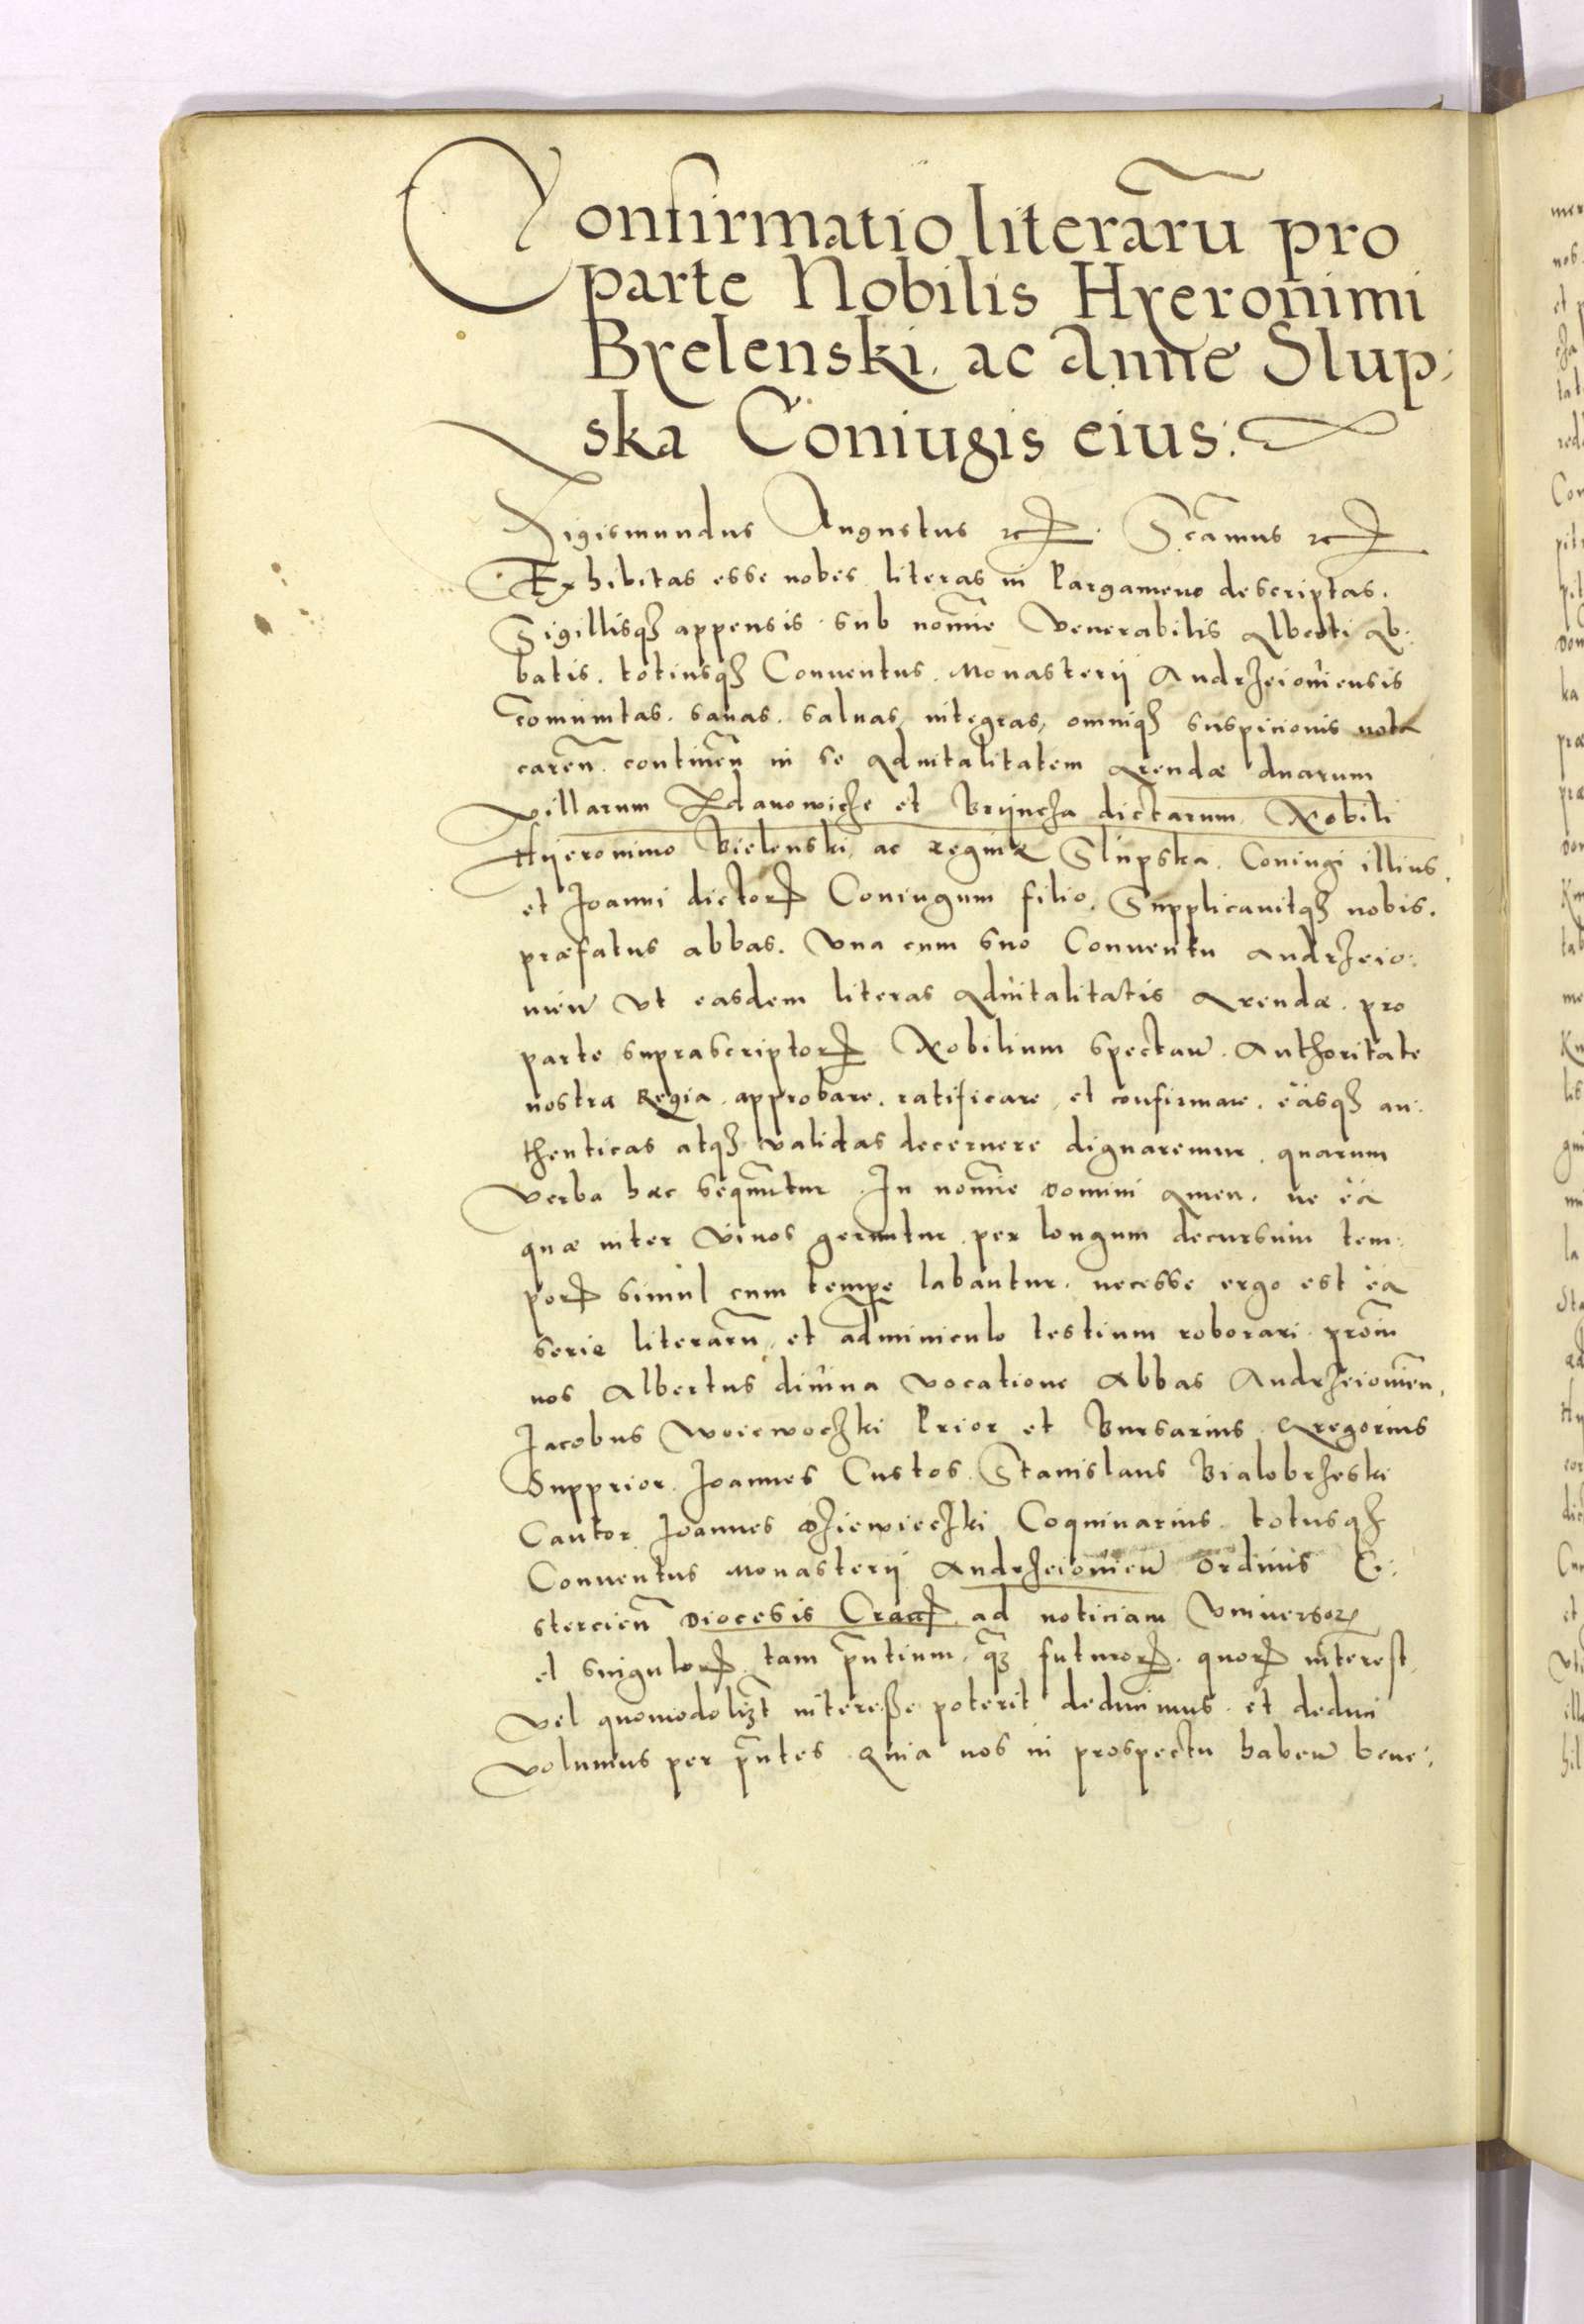 Confirmatio literarū pro
parte Nobilis Hyeronimi
Byelenski. ac Anne Slup:
ska Coniugis eius:
Sigismundus Augustus ꝛc. S̄camus ꝛc
Exhibitas esse nobis literas in Pargameno descriptas.
Sigillisqȝ appensis sub noīne Venerabilis Alberti Ab:
batis. totiusqȝ Conuentus Monasterij Andrzeiouiensis
com̄unitas. sanas. saluas, integras, omniqȝ suspicionis nota
careñ. contineñ in se Aduitalitatem Arendæ duarum
Villarum Zdanowicze et Brijncza dictarum Nobili
Hyeronimo Bielenski, ac Reginæ Slupska Coniugi illius,
et Joanni dictorꝝ Coniugum filio. Supplicauitqȝ nobis.
præfatus abbas. Vna cum suo Conuentu Andrzeio:
uień Vt easdem literas Aduitalitatis Arendæ. pro
parte suprascriptorꝝ Nobilium spectañ. Authoritate
nostra Regia. approbare. ratificare, et confirmare. easqȝ au:
thenticas atqȝ validas decernere dignaremur. quarum
Verba hæc sequūtur. In noīne Domini Amen. ne ea
quæ inter Viuos geruntur. per longum decursum tem:
porꝝ simul cum tempe labantur. necesse ergo est ea
serie literarū, et adminiculo testium roborari. proīn
nos Albertus diuina vocatione Abbas Andrzeiouień,
Jacobus Woiewoczki Prior et Bursarius Gregorius
Supprior. Joannes Custos. Stanislaus Bialobrzeski
Cantor Joannes Dziewieczki Coquinarius totusqȝ
Conuentus Monasterij Andrzeiouień Ordinis Ci:
stercień Diocesis Cracꝝ ad noticiam Vniuersorꝝ
et singulorꝝ tam p̄ntium, q̄ȝ futurorꝝ. quorꝝ interest,
Vel quomodolizt interesse poterit deducimus. et deduci
volumus per p̄ntes Quia nos in prospectu habeñ bene: